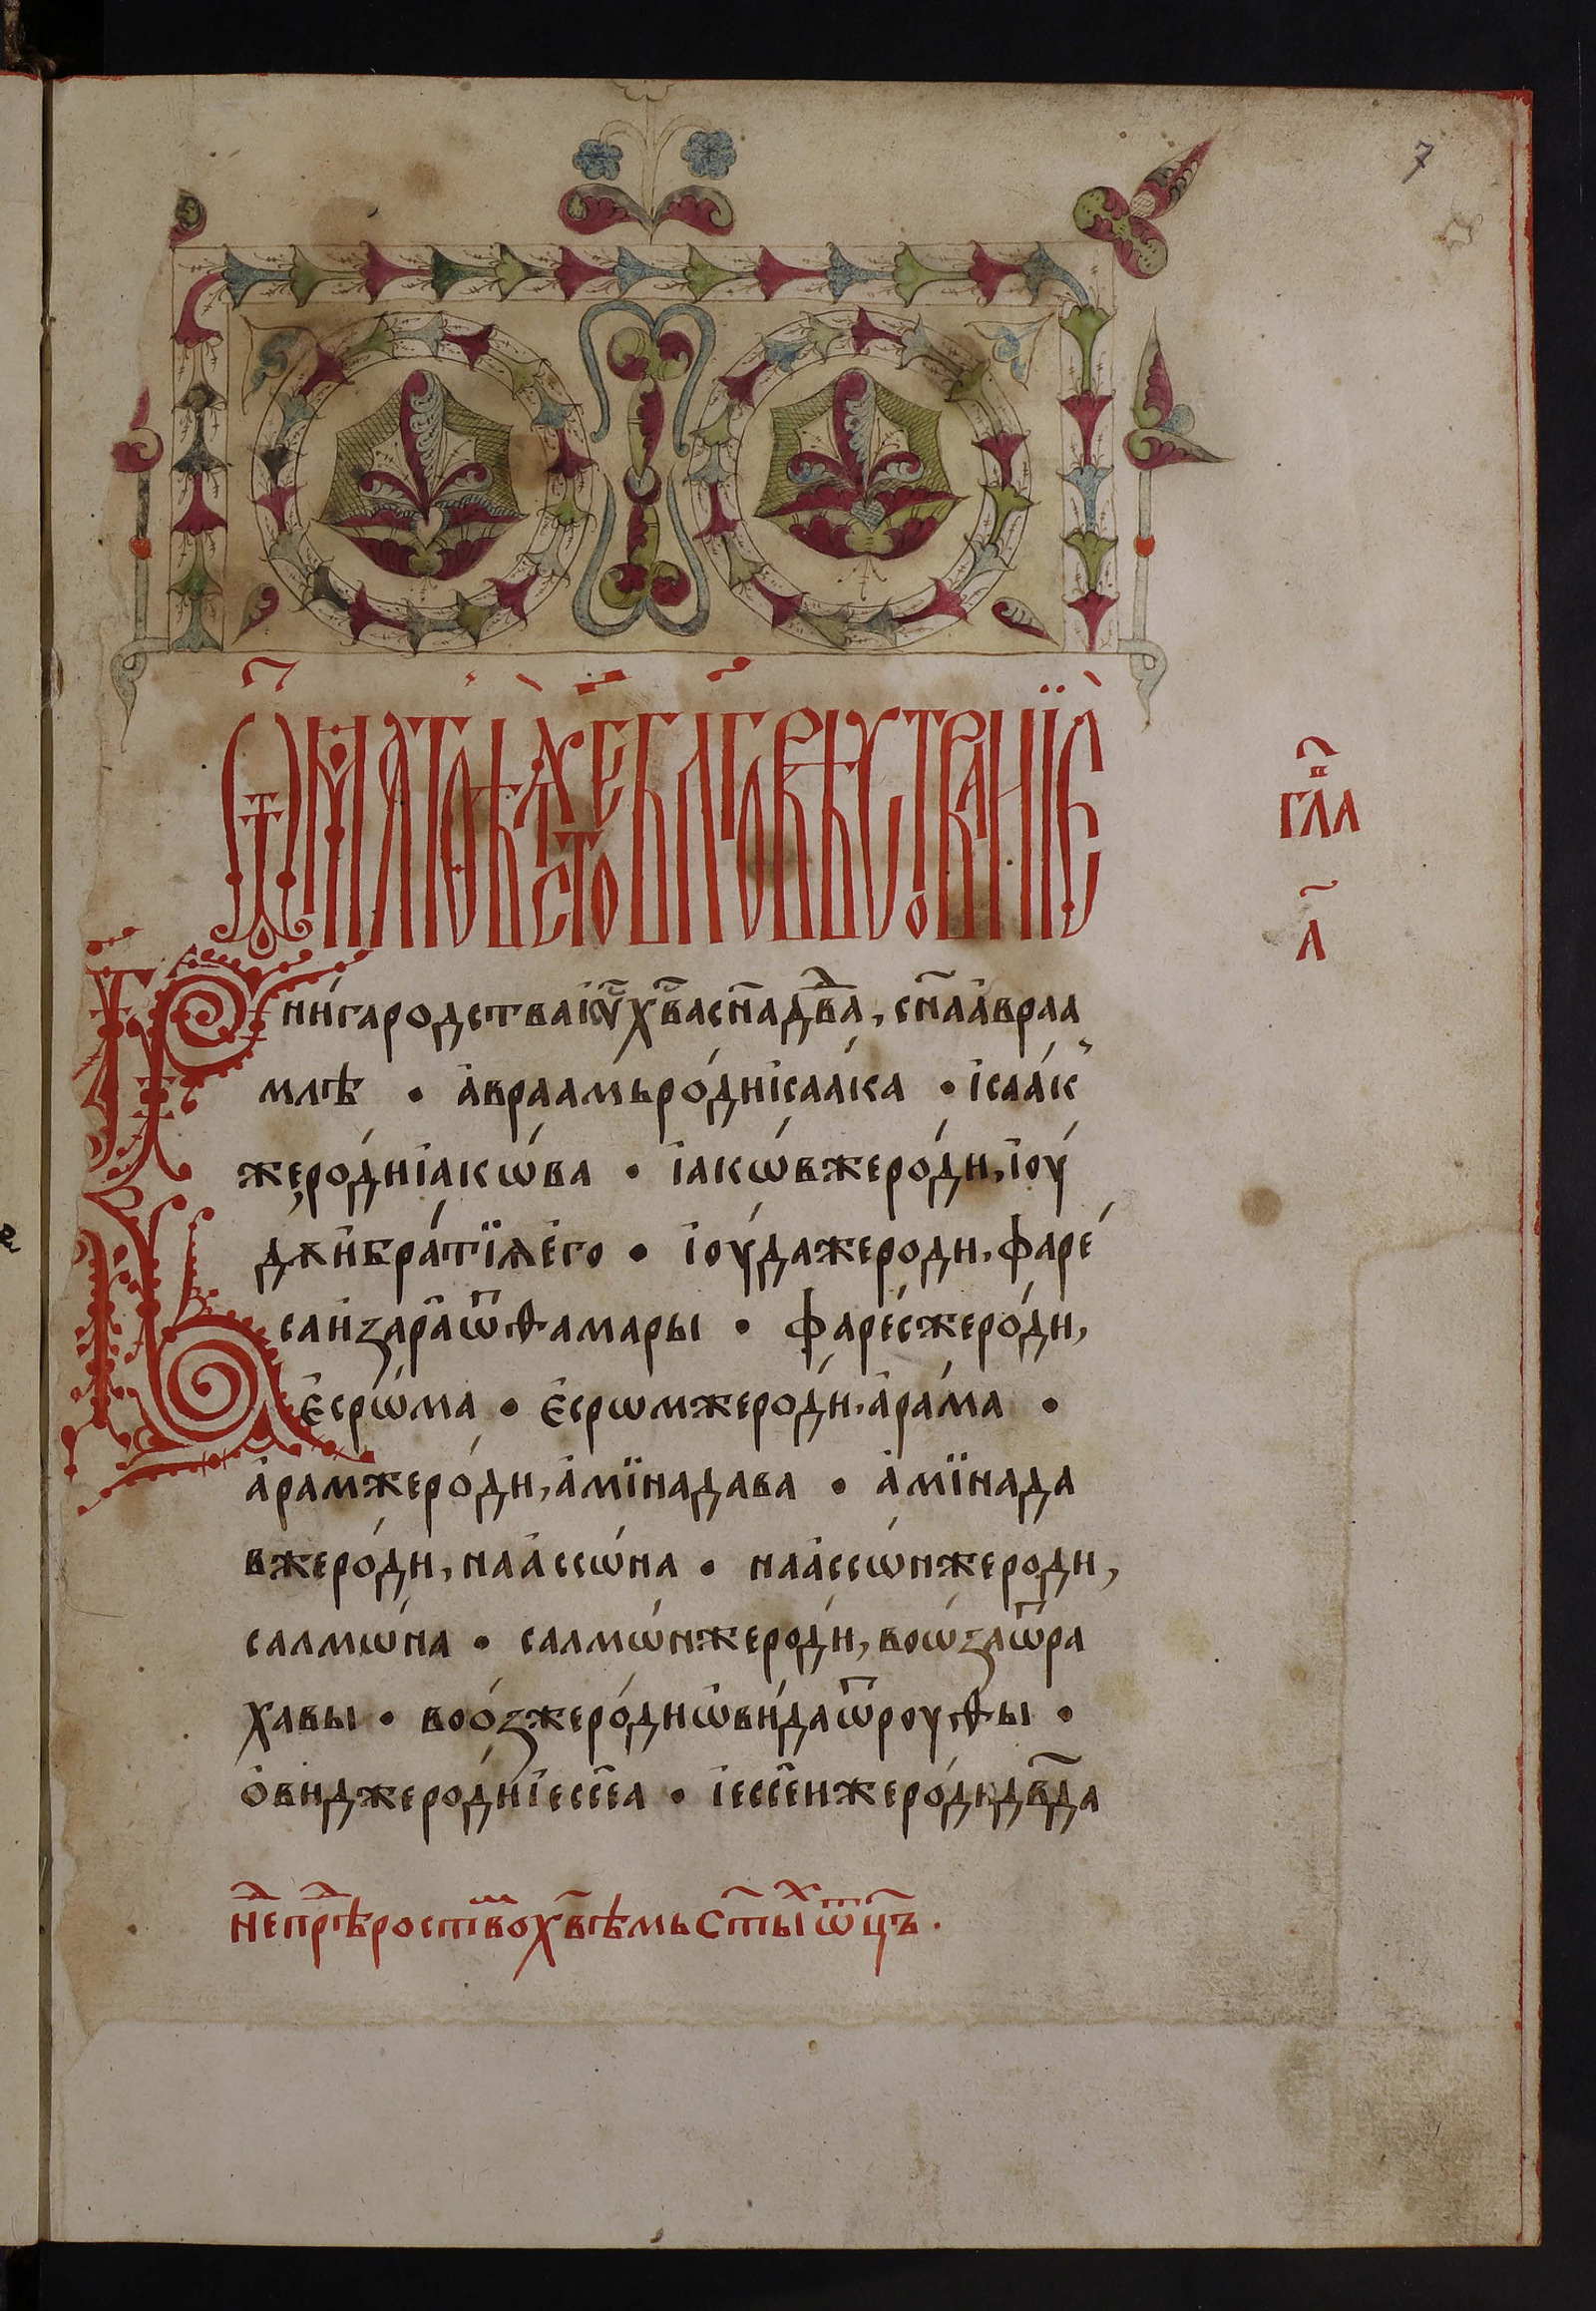 7
Ѿ МАТѲѢѦ СТ҃О Е БЛГОВѢСТВОВАНЇЕ
гл҃а
а҃
Кни́га родства і҆у҃ хв҃а сн҃а дв҃да, сн҃а а҆враа
млѣ • а҆враамъ роди і҆саа́ка • і҆саа́к
же роди і҆акѡ́ва • і҆акѡ́в же роди, і҆оу́
дѫ и҆ бра́тїѧ е҆го • і҆оу́да же роди, фаре́
са и҆ зара ѿ ѳамары • фаре́с же роди,
є҆срѡ́ма • є҆срѡм же роди, а҆ра́ма •
а҆рам же роди, а҆мїнадава • а҆мїнада
в же роди, наа҆ссѡ́на • наа҆ссѡ́н же роди,
салмѡ́на • салмѡ́н же роди, воѡ́за ѿ ра
хавы • воо́з же роди ѡ҆ви́да ѿ роуѳы •
о҆вид же роди і҆ессе́а • і҆ессе́и же роди дв҃да
нед҃ прⷣѣ роств҃о хв҃ѣмь ст҃ыⷯ ѿц҃ъ.